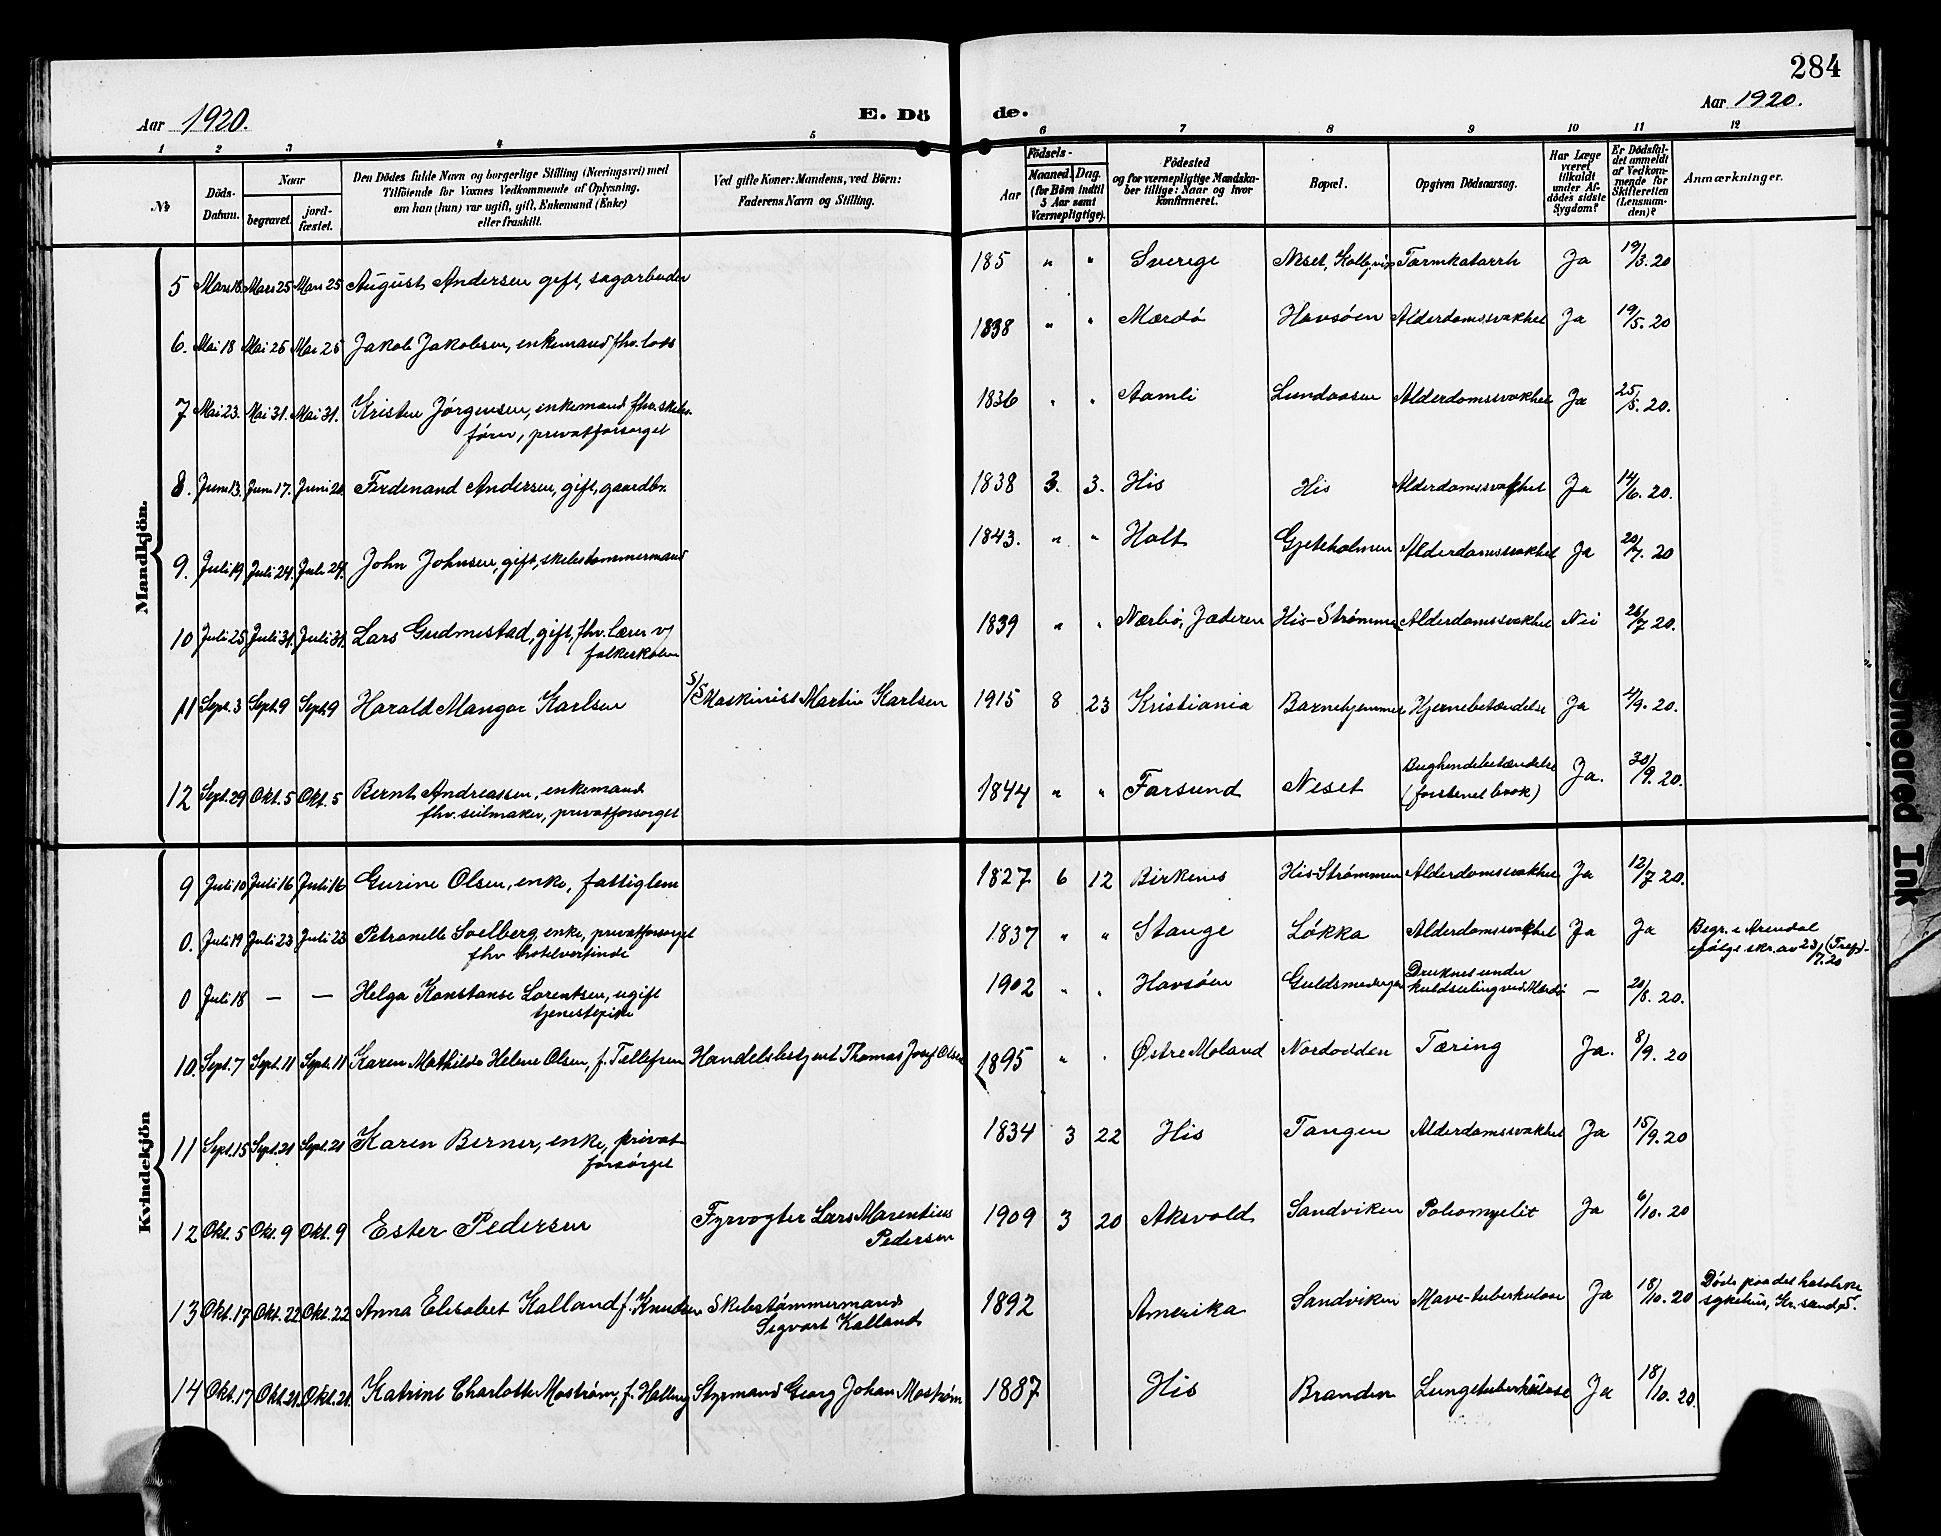 284
Aar 1920.
E. Dö
de.
Aar 1920.
1 2 3 4 5 6 7 8 9 10 11 12
№
Döds-Datum.
Naar
begravet.
jord-fæstet.
Den Dödes fulde Navn og borgerlige Stilling (Næringsvei) med
Tilföiende for Voxnes Vedkommende af Oplysning,
om han (hun) var ugift, gift, Enkemand (Enke)
eller fraskilt.
Ved gifte Koner: Mandens, ved Börn:
Faderens Navn og Stilling.
Födsels-
Aar
Maaned. Dag.
(for Börn indtil
5 Aar samt
Værnepligtige).
Födested
og for værnepligtige Mandska-
ber tillige: Naar og hvor
konfirmeret.
Bopæl.
Opgiven Dödsaarsag.
Har Læge
været
tilkaldt
under Af-
dödes sidste
Sygdom?
Er Dödsfal-
det anmeldt
af Vedkom-
mende for
Skifteretten
(Lensman-
den)?
Anmærkninger.
Mandkjön.
5 Mars 18. Mars 25 Mars 25 August Andersen gift, sagarbeider 185 " " Sverige Neset, Kolbjvn Tarmkatarrh Ja 19/3.20
6. Mai 18 Mai 25 Mai 25 Jakob Jakobsen, enkemand fhv. lods 1838 " " Mærdø Havsøen Alderdomssvakhet Ja 19/5.20
7 Mai 23. Mai 31. Mai 31. Kristen Jørgensen, enkemand fhv. skibs-
fører, privatforsørget 1836 " " Aamli Lundaasen Alderdomssvakhet Ja 25/5.20.
8. Juni 13. Juni 17. Juni 20. Ferdenand Andersen, gift, gaardbr. 1838 3. 3. His His Alderdomssvakhet Ja 14/6.20.
9. Juli 19 Juli 24. Juli 24. John Johnsen, gift, skibstømmermand 1843. " " Holt Gjeteholmen Alderdomssvakhet Ja 20/7.20
10 Juli 25 Juli 31. Juli 31. Lars Gudmestad, gift, fhv. lærer v/
folkeskolen 1839 " " Nærbø, Jæderen His-Strømmen Alderdomssvakhet Nei 26/7 20.
11 Sept. 3 Sept. 9 Sept. 9 Harald Mangor Karlsen S/S Maskinist Martin Karlsen 1915 8 23 Kristiania Barnehjemmet Hjernebetændelse Ja 4/9.20.
12 Sept. 29 Okt. 5 Okt. 5 Bernt Andreassen, enkemand
fhv. seilmaker, privatforsørget 1844 " " Farsund Neset Bughindebetændelse
(forstenet brok) Ja. 30/9.20.
Kvindekjön
9 Juli 10 Juli 16 Juli 16 Gurine Olsen, enke, fattiglem 1827 6 12 Birkenes His-Strømmen Alderdomssvakhet Ja 12/7 20.
0. Juli 19 Juli 23 Juli 23 Petronelle Soelberg, enke, privatforsørget
fhv hotelvertinde 1837 " " Stange Løkka Alderdomssvakhet Ja Ja Begr. i Arendal
ifølge skr. av 23/7.20 (Trefj.)
0 Juli 18 — — Helga Konstanse Lorentsen, ugift
tjenestepike 1902 " " Havsøen Guldsmedengen Druknet under
kuldseiling ved Mærdø — 20/8.20.
10. Sept. 7 Sept. 11 Sept. 11 Karen Mathilde Helene Olsen, f. Tellefsen Handelsbetjent Thomas Josef Olsen 1895 " " Østre Moland Nordodden Tæring Ja. 8/9.20
11 Sept. 15 Sept. 21 Sept. 21 Karen Berner, enke, privat-
forsørget 1834 3 22 His Tangen Alderdomssvakhet Ja 15/9.20
12 Okt. 5 Okt. 9 Okt. 9 Ester Pedersen Fyrvogter Lars Marentius
Pedersen 1909 3 20 Aksvold Sandviken Poliomyelit Ja 6/10.20
13 Okt. 17 Okt. 22 Okt. 22 Anna Elisabet Kalland f. Knudsen Skibstømmermand
Sigvart Kalland 1892 Amerika Sandviken Mave-tuberkulose Ja 18/10.20 Døde paa det katolske
sykehus, Kr.sand, S.
14 Okt. 17 Okt. 21. Okt. 21. Katrine Charlotte Mostrøm, f. Halling Styrmand Georg Johan Mostrøm 1887 His Branden Lungetuberkulose Ja 18/10.20.
Smeared Ink